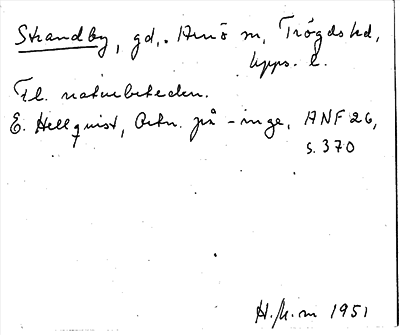 Strandby, gd, Arnö sn, Trögds hd,
Upps. l.
Fl. naturbeteckn.
E. Hellquist, Ortn. på -inge, ANF 26,
s. 370
H. 1951